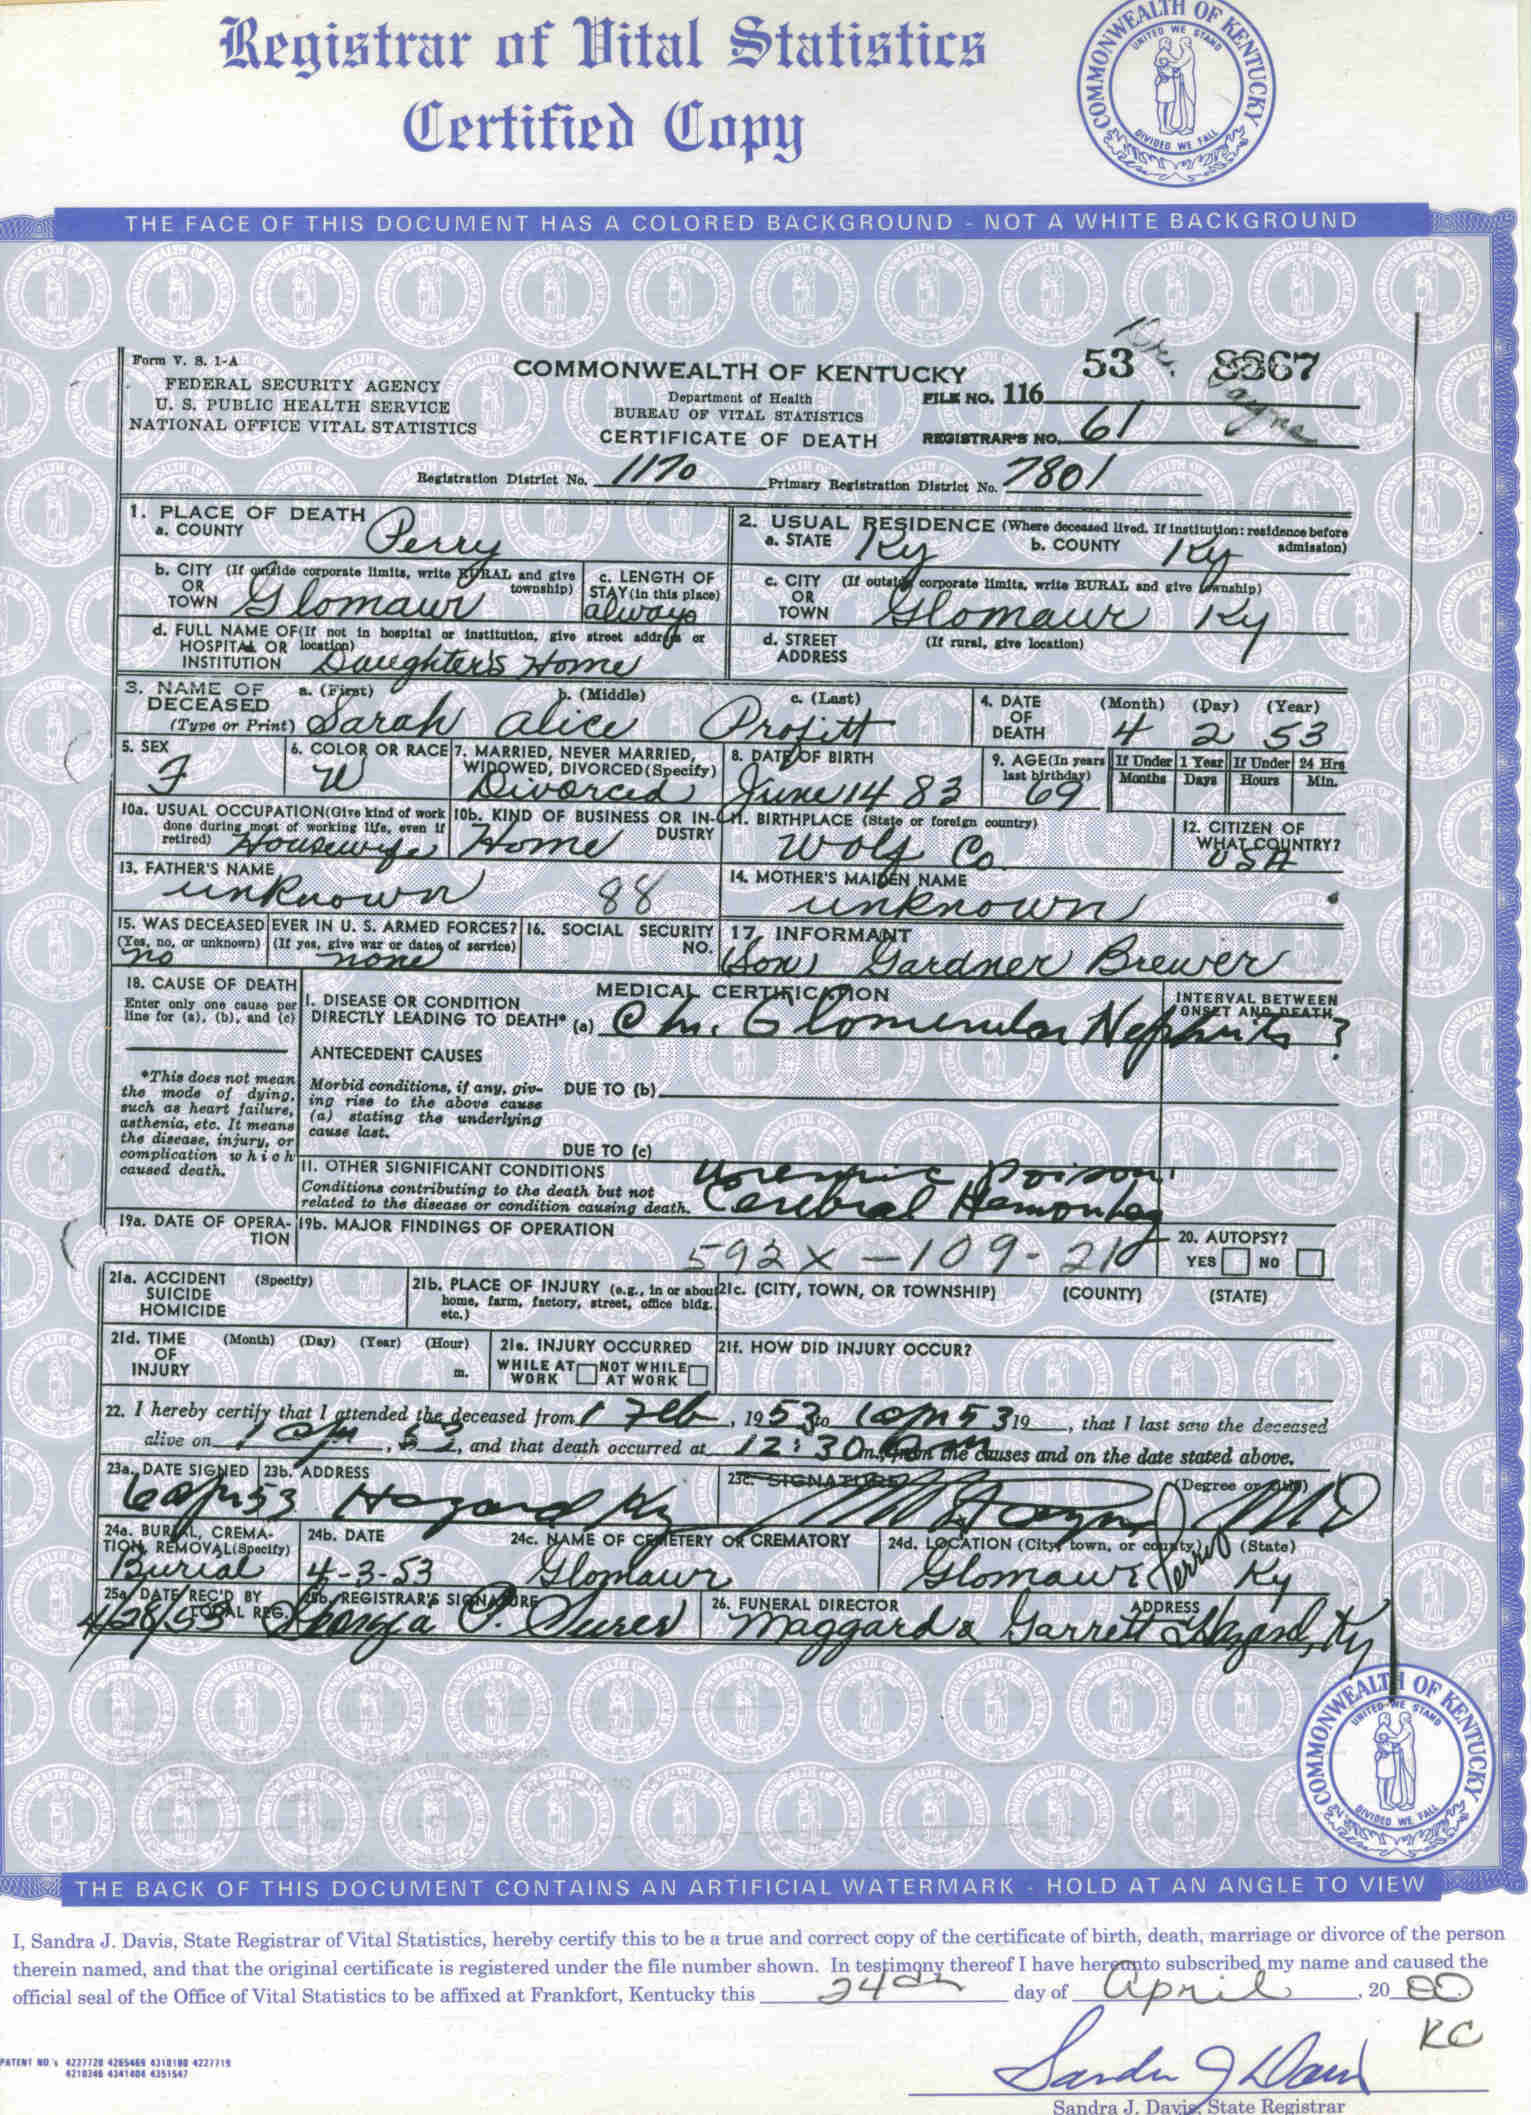 Registrar of Vital Statistics
Certified Copy
COMMONWEALTH OF KENTUCKY
UNITED WE STAND
DIVIDED WE FALL
THE FACE OF THIS DOCUMENT HAS A COLORED BACKGROUND - NOT A WHITE BACKGROUND
Form V. S. 1-A
FEDERAL SECURITY AGENCY
U. S. PUBLIC HEALTH SERVICE
NATIONAL OFFICE VITAL STATISTICS
COMMONWEALTH OF KENTUCKY
Department of Health
BUREAU OF VITAL STATISTICS
CERTIFICATE OF DEATH
53 8867
FILE NO. 116
REGISTRAR'S NO. 61
Registration District No. 1170 Primary Registration District No. 7801
1. PLACE OF DEATH
a. COUNTY Perry
2. USUAL RESIDENCE (Where deceased lived. If institution: residence before admission)
a. STATE Ky b. COUNTY Ky
b. CITY (If outside corporate limits, write RURAL and give township)
OR
TOWN Glomawr
c. LENGTH OF
STAY (in this place)
always
c. CITY (If outside corporate limits, write RURAL and give township)
OR
TOWN Glomawr Ky
d. FULL NAME OF (If not in hospital or institution, give street address or location)
HOSPITAL OR
INSTITUTION Daughter's Home
d. STREET (If rural, give location)
ADDRESS
3. NAME OF DECEASED
(Type or Print)
a. (First) b. (Middle) c. (Last)
Sarah Alice Profitt
4. DATE OF DEATH (Month) (Day) (Year)
4 2 53
5. SEX
F
6. COLOR OR RACE
W
7. MARRIED, NEVER MARRIED,
WIDOWED, DIVORCED (Specify)
Divorced
8. DATE OF BIRTH
June 14 83
9. AGE (In years last birthday)
69
If Under 1 Year
Months Days
If Under 24 Hrs
Hours Min.
10a. USUAL OCCUPATION (Give kind of work
done during most of working life, even if
retired) Housewife
10b. KIND OF BUSINESS OR INDUSTRY
Home
11. BIRTHPLACE (State or foreign country)
Wolf Co.
12. CITIZEN OF
WHAT COUNTRY?
USA
13. FATHER'S NAME
unknown 88
14. MOTHER'S MAIDEN NAME
unknown
15. WAS DECEASED EVER IN U. S. ARMED FORCES?
(Yes, no, or unknown) (If yes, give war or dates of service)
no none
16. SOCIAL SECURITY
NO.
17. INFORMANT
(Son) Gardner Brewer
18. CAUSE OF DEATH
Enter only one cause per
line for (a), (b), and (c)
*This does not mean
the mode of dying,
such as heart failure,
asthenia, etc. It means
the disease, injury, or
complication which
caused death.
MEDICAL CERTIFICATION
INTERVAL BETWEEN
ONSET AND DEATH
I. DISEASE OR CONDITION
DIRECTLY LEADING TO DEATH* (a) Chr. Glomerular Nephritis ?
ANTECEDENT CAUSES
Morbid conditions, if any, giving
rise to the above cause
(a) stating the underlying
cause last.
DUE TO (b)
DUE TO (c)
II. OTHER SIGNIFICANT CONDITIONS
Conditions contributing to the death but not
related to the disease or condition causing death.
Poison
Cerebral
19a. DATE OF OPERATION
19b. MAJOR FINDINGS OF OPERATION
592X - 109-216
20. AUTOPSY?
YES NO
21a. ACCIDENT (Specify)
SUICIDE
HOMICIDE
21b. PLACE OF INJURY (e.g., in or about
home, farm, factory, street, office bldg.,
etc.)
21c. (CITY, TOWN, OR TOWNSHIP) (COUNTY) (STATE)
21d. TIME (Month) (Day) (Year) (Hour)
OF
INJURY m.
21e. INJURY OCCURRED
WHILE AT WORK NOT WHILE AT WORK
21f. HOW DID INJURY OCCUR?
22. I hereby certify that I attended the deceased from 1 Feb, 1953 to 1 Apr 53 19 , that I last saw the deceased
alive on 1 Apr, 53, and that death occurred at 12:30 m., from the causes and on the date stated above.
23a. DATE SIGNED
6 Apr 53
23b. ADDRESS
Hazard Ky
23c. SIGNATURE (Degree or title)
MD
24a. BURIAL, CREMATION,
REMOVAL (Specify)
Burial
24b. DATE
4-3-53
24c. NAME OF CEMETERY OR CREMATORY
Glomawr
24d. LOCATION (City, town, or county) (State)
Glomawr Perry Ky
25a. DATE REC'D BY
LOCAL REG.
4/28/53
25b. REGISTRAR'S SIGNATURE
Georgia
26. FUNERAL DIRECTOR ADDRESS
Maggard & Garrett Hazard, Ky
COMMONWEALTH OF KENTUCKY
UNITED WE STAND
DIVIDED WE FALL
THE BACK OF THIS DOCUMENT CONTAINS AN ARTIFICIAL WATERMARK - HOLD AT AN ANGLE TO VIEW
I, Sandra J. Davis, State Registrar of Vital Statistics, hereby certify this to be a true and correct copy of the certificate of birth, death, marriage or divorce of the person
therein named, and that the original certificate is registered under the file number shown. In testimony thereof I have hereunto subscribed my name and caused the
official seal of the Office of Vital Statistics to be affixed at Frankfort, Kentucky this 24th day of April, 20 00
KC
PATENT NO.'s 4227720 4265469 4310180 4227719
4210346 4341404 4351547
Sandra J Davis
Sandra J. Davis, State Registrar